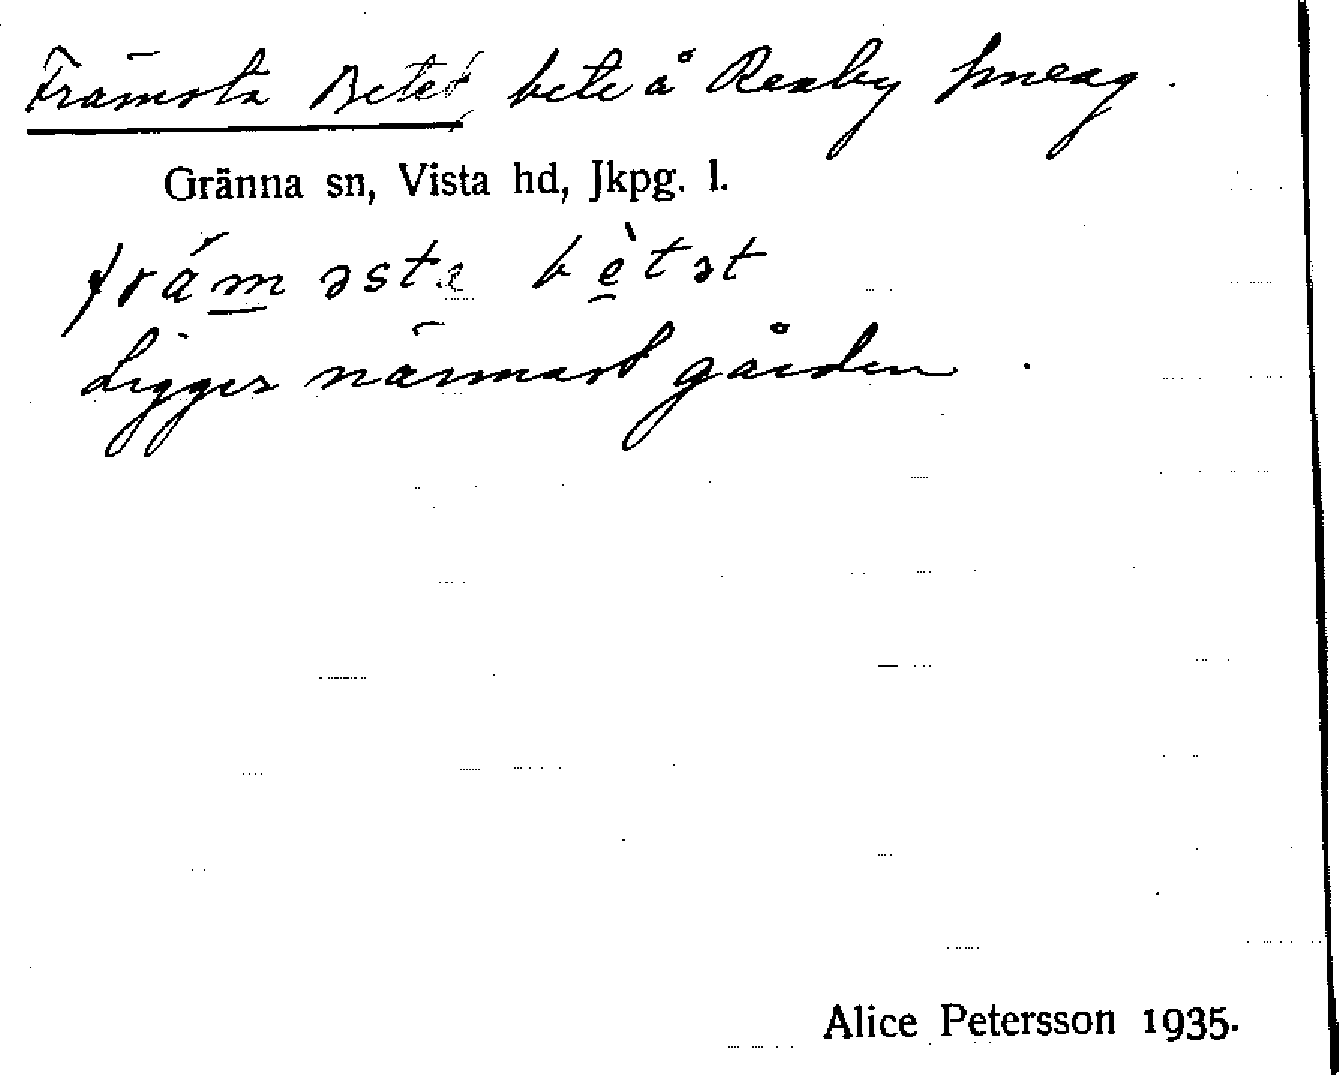 Främsta Betet bete å Reaby smeag.
Gränna sn, Vista hd, Jkpg. l.
frám əsta bètət
Ligger närmast gården.
Alice Petersson 1935.